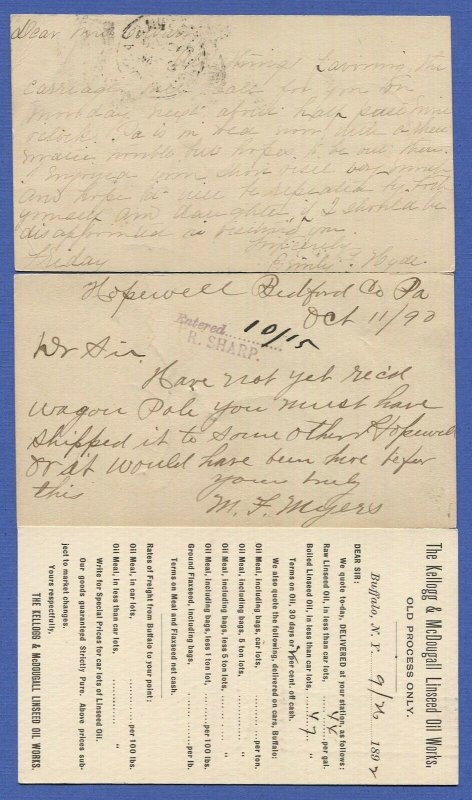 Dear Mrs
carriage will call for you on
Monday next about half past nine
o'clock. Pa is in bed now with a rheu
matic trouble but hopes to be out then.
I enjoyed your short visit very much
and hope it will be repeated by both
yourself and daughter. I should be
disappointed in
Sincerely
Friday Emily F. Hyde
Hopewell Bedford Co Pa
Oct 11/90
Entered 10/15
R. SHARP.
Dr Sir
Have not yet rec'd
wagon Pole you must have
shipped it to some other Hopewell
or it would have been here befor
this yours truly
M. F. Myers
The Kellogg & McDougall Linseed Oil Works,
OLD PROCESS ONLY.
Buffalo, N. Y. 9/26 1892
DEAR SIR:
We quote to-day, DELIVERED at your station, as follows:
Raw Linseed Oil, in less than car lots, 44 per gal.
Boiled Linseed Oil, in less than car lots, 47 "
Terms on Oil, 30 days or per cent. off cash.
We also quote the following, delivered on cars, Buffalo:
Oil Meal, including bags, car lots, per ton.
Oil Meal, including bags, 5 ton lots, "
Oil Meal, including bags, less 5 ton lots, "
Oil Meal, including bags, less 1 ton lot, per 100 lbs.
Ground Flaxseed, including bags, per lb.
Terms on Meal and Flaxseed net cash.
Rates of Freight from Buffalo to your point:
Oil Meal, in car lots, per 100 lbs.
Oil Meal, in less than car lots, "
Write for Special Prices for car lots of Linseed Oil.
Our goods guaranteed Strictly Pure. Above prices sub-
ject to market changes
Yours respectfully,
THE KELLOGG & McDOUGALL LINSEED OIL WORKS.